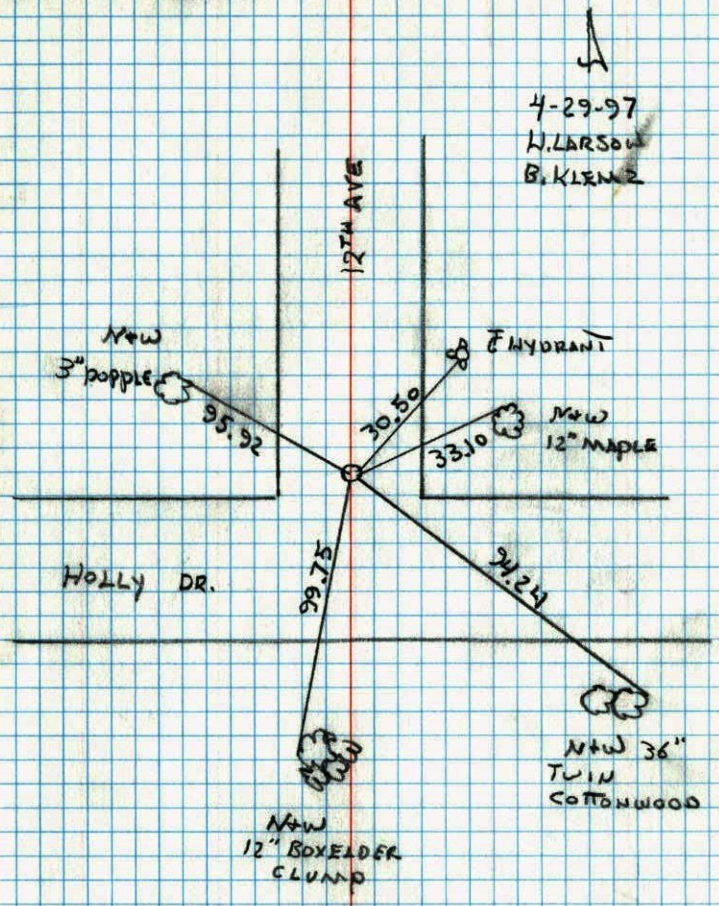 4-29-97
W. LARSON
B. KLENZ
12TH AVE
N+W
3" POPPLE
℄ HYDRANT
95.92
30.50
N+W
12" MAPLE
33.10
HOLLY DR.
99.75
94.24
N+W 36"
TWIN
COTTONWOOD
N+W
12" BOXELDER
CLUMP